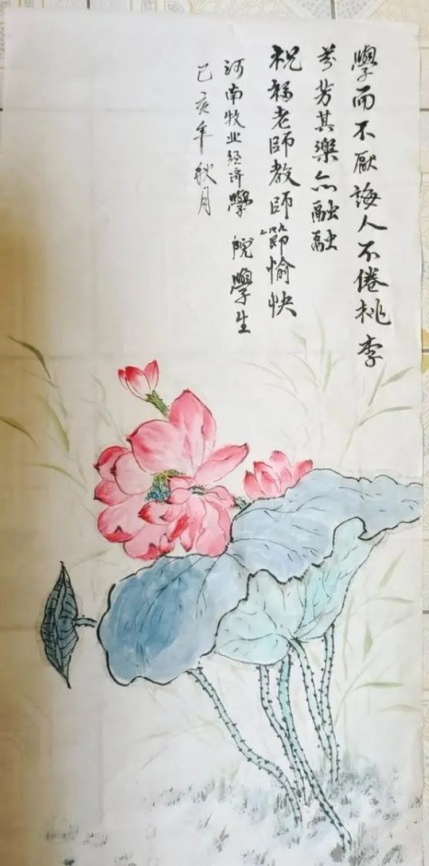 學而不厭誨人不倦桃李
芬芳其樂亦融融
祝福老師教師節愉快
河南牧业经济學院學生
己亥年秋月